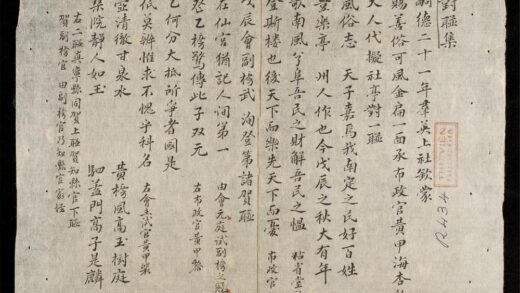 對聯集
嗣德二十一年羣英上社欽蒙
賜善俗可風金扁一面承布政官黃甲海杏
大人代擬社亭對一聯
風俗志 天子嘉焉我南定之民好百姓
豐樂亭 州人作也今戊辰之秋大有年
歌南風兮阜吾民之財解吾民之慍 粘省堂
登斯樓也後天下而樂先天下而憂 布政官
戊辰會副榜武 洵登第諸賀聯
在仙宮猶記人间第一 由會元庭試副榜之
登乙榜驚傳此子双元 右布政官黃甲
乙何分大抵所爭者國是
低莫辨惟求不愧乎科名 右會試官黃甲
壺清徹甘泉水 黃榜風高玉樹庭
院静人如玉 駟蓋門高子是麟
右二聯真寧縣同賀上聯賀知縣官下聯
賀副榜官 由副榜官乃知縣官
THƯ VIỆN
R.434